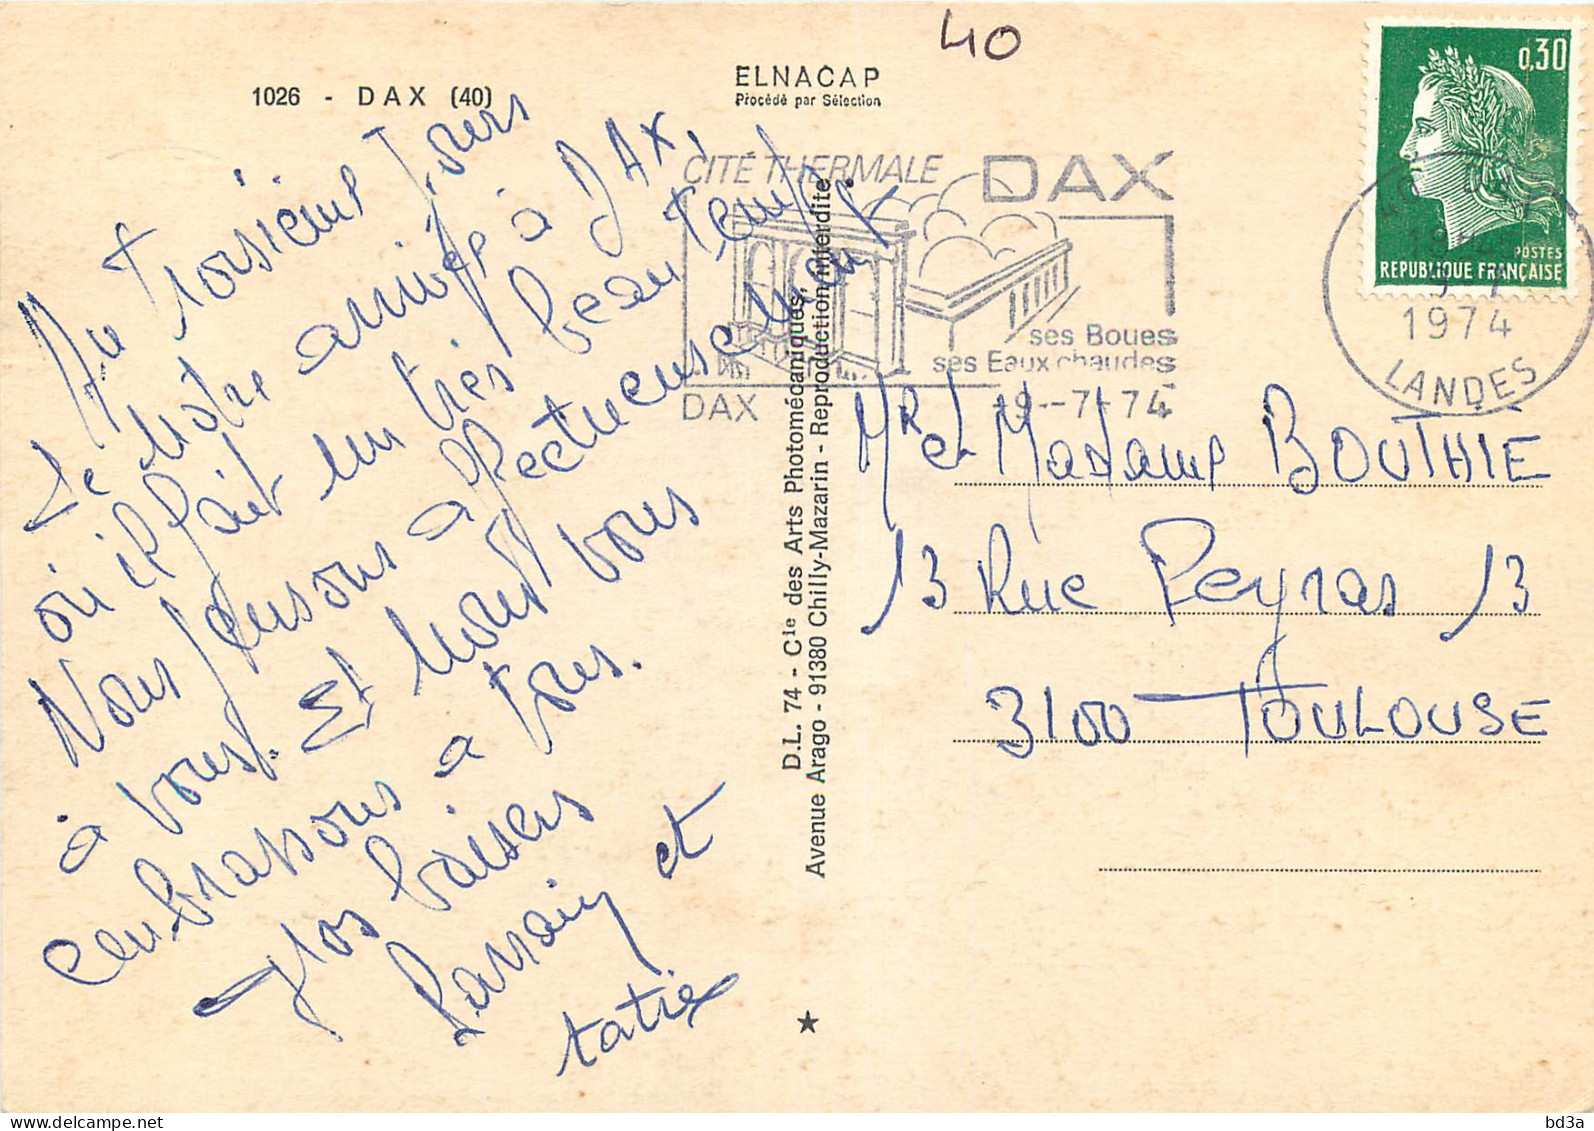 40
1026 - DAX (40)
ELNACAP
Procédé par Sélection
0,30
POSTES
REPUBLIQUE FRANÇAISE
CITÉ THERMALE DAX
ses Boues
ses Eaux chaudes
DAX
-9--7-74
1974
LANDES
Au Troisième Jours
de notre arrivée à DAX,
où il fait un très beau temps
Nous pensons affectueusement
à vous. Et nous vous
embrassons à tous.
gros baisers
Parrain et
tatie
D.L. 74 - Cie des Arts Photomécaniques,
Avenue Arago - 91380 Chilly-Mazarin - Reproduction interdite
MR et Madame BOUTHIE
13 Rue Peyras 13
3100 TOULOUSE
bd3a